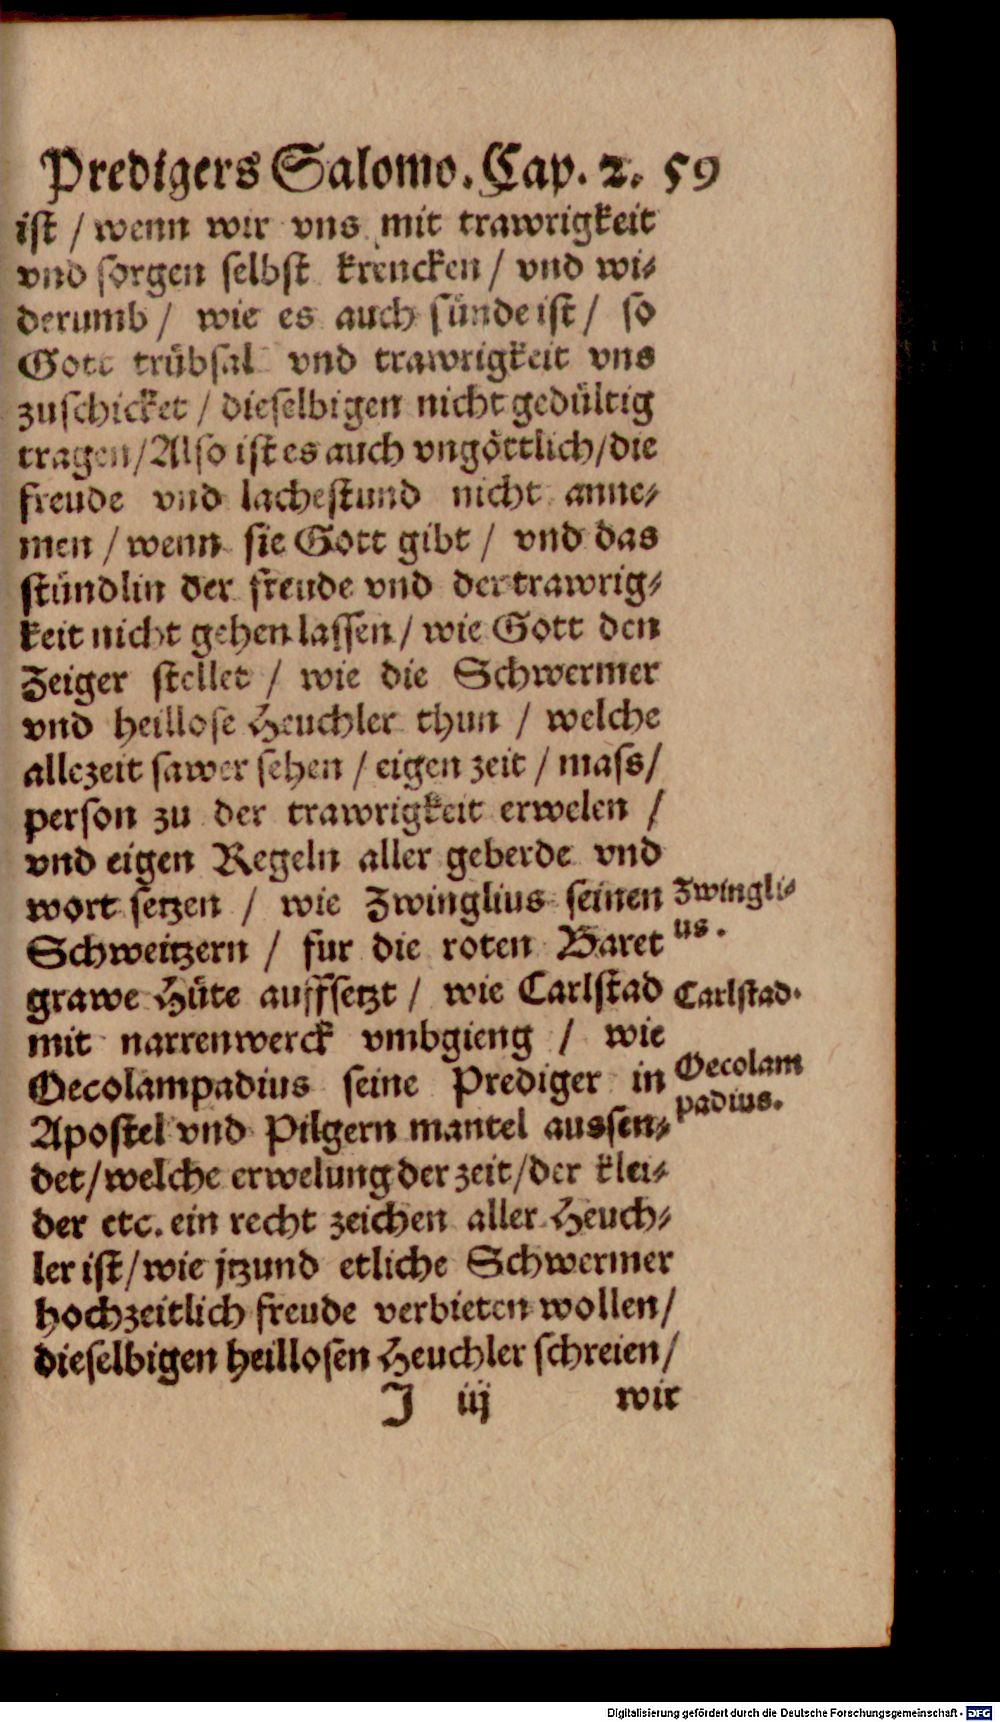 Predigers Salomo. Cap. 2. 59
ist / wenn wir vns mit trawrigkeit
vnd sorgen selbst krencken / vnd wi⸗
derumb / wie es auch sünde ist / so
Gott trübsal vnd trawrigkeit vns
zuschicket / dieselbigen nicht gedültig
tragen / Also ist es auch vngöttlich / die
freude vnd lachestund nicht anne⸗
men / wenn sie Gott gibt / vnd das
stündlin der freude vnd der trawrig⸗
keit nicht gehen lassen / wie Gott den
Zeiger stellet / wie die Schwermer
vnd heillose Heuchler thun / welche
allezeit sawer sehen / eigen zeit / mass /
person zu der trawrigkeit erwelen /
vnd eigen Regeln aller geberde vnd
wort setzen / wie Zwinglius seinen
Schweitzern / fur die roten Baret
grawe Hüte auffsetzt / wie Carlstad
mit narrenwerck vmbgieng / wie
Oecolampadius seine Prediger in
Apostel vnd Pilgern mantel aussen⸗
det / welche erwelung der zeit / der klei⸗
der etc. ein recht zeichen aller Heuch⸗
ler ist / wie jtzund etliche Schwermer
hochzeitlich freude verbieten wollen /
dieselbigen heillosen Heuchler schreien /
J iij wir
Zwingli⸗
us.
Carlstad.
Oecolam
padius.
Digitalisierung gefördert durch die Deutsche Forschungsgemeinschaft - DFG